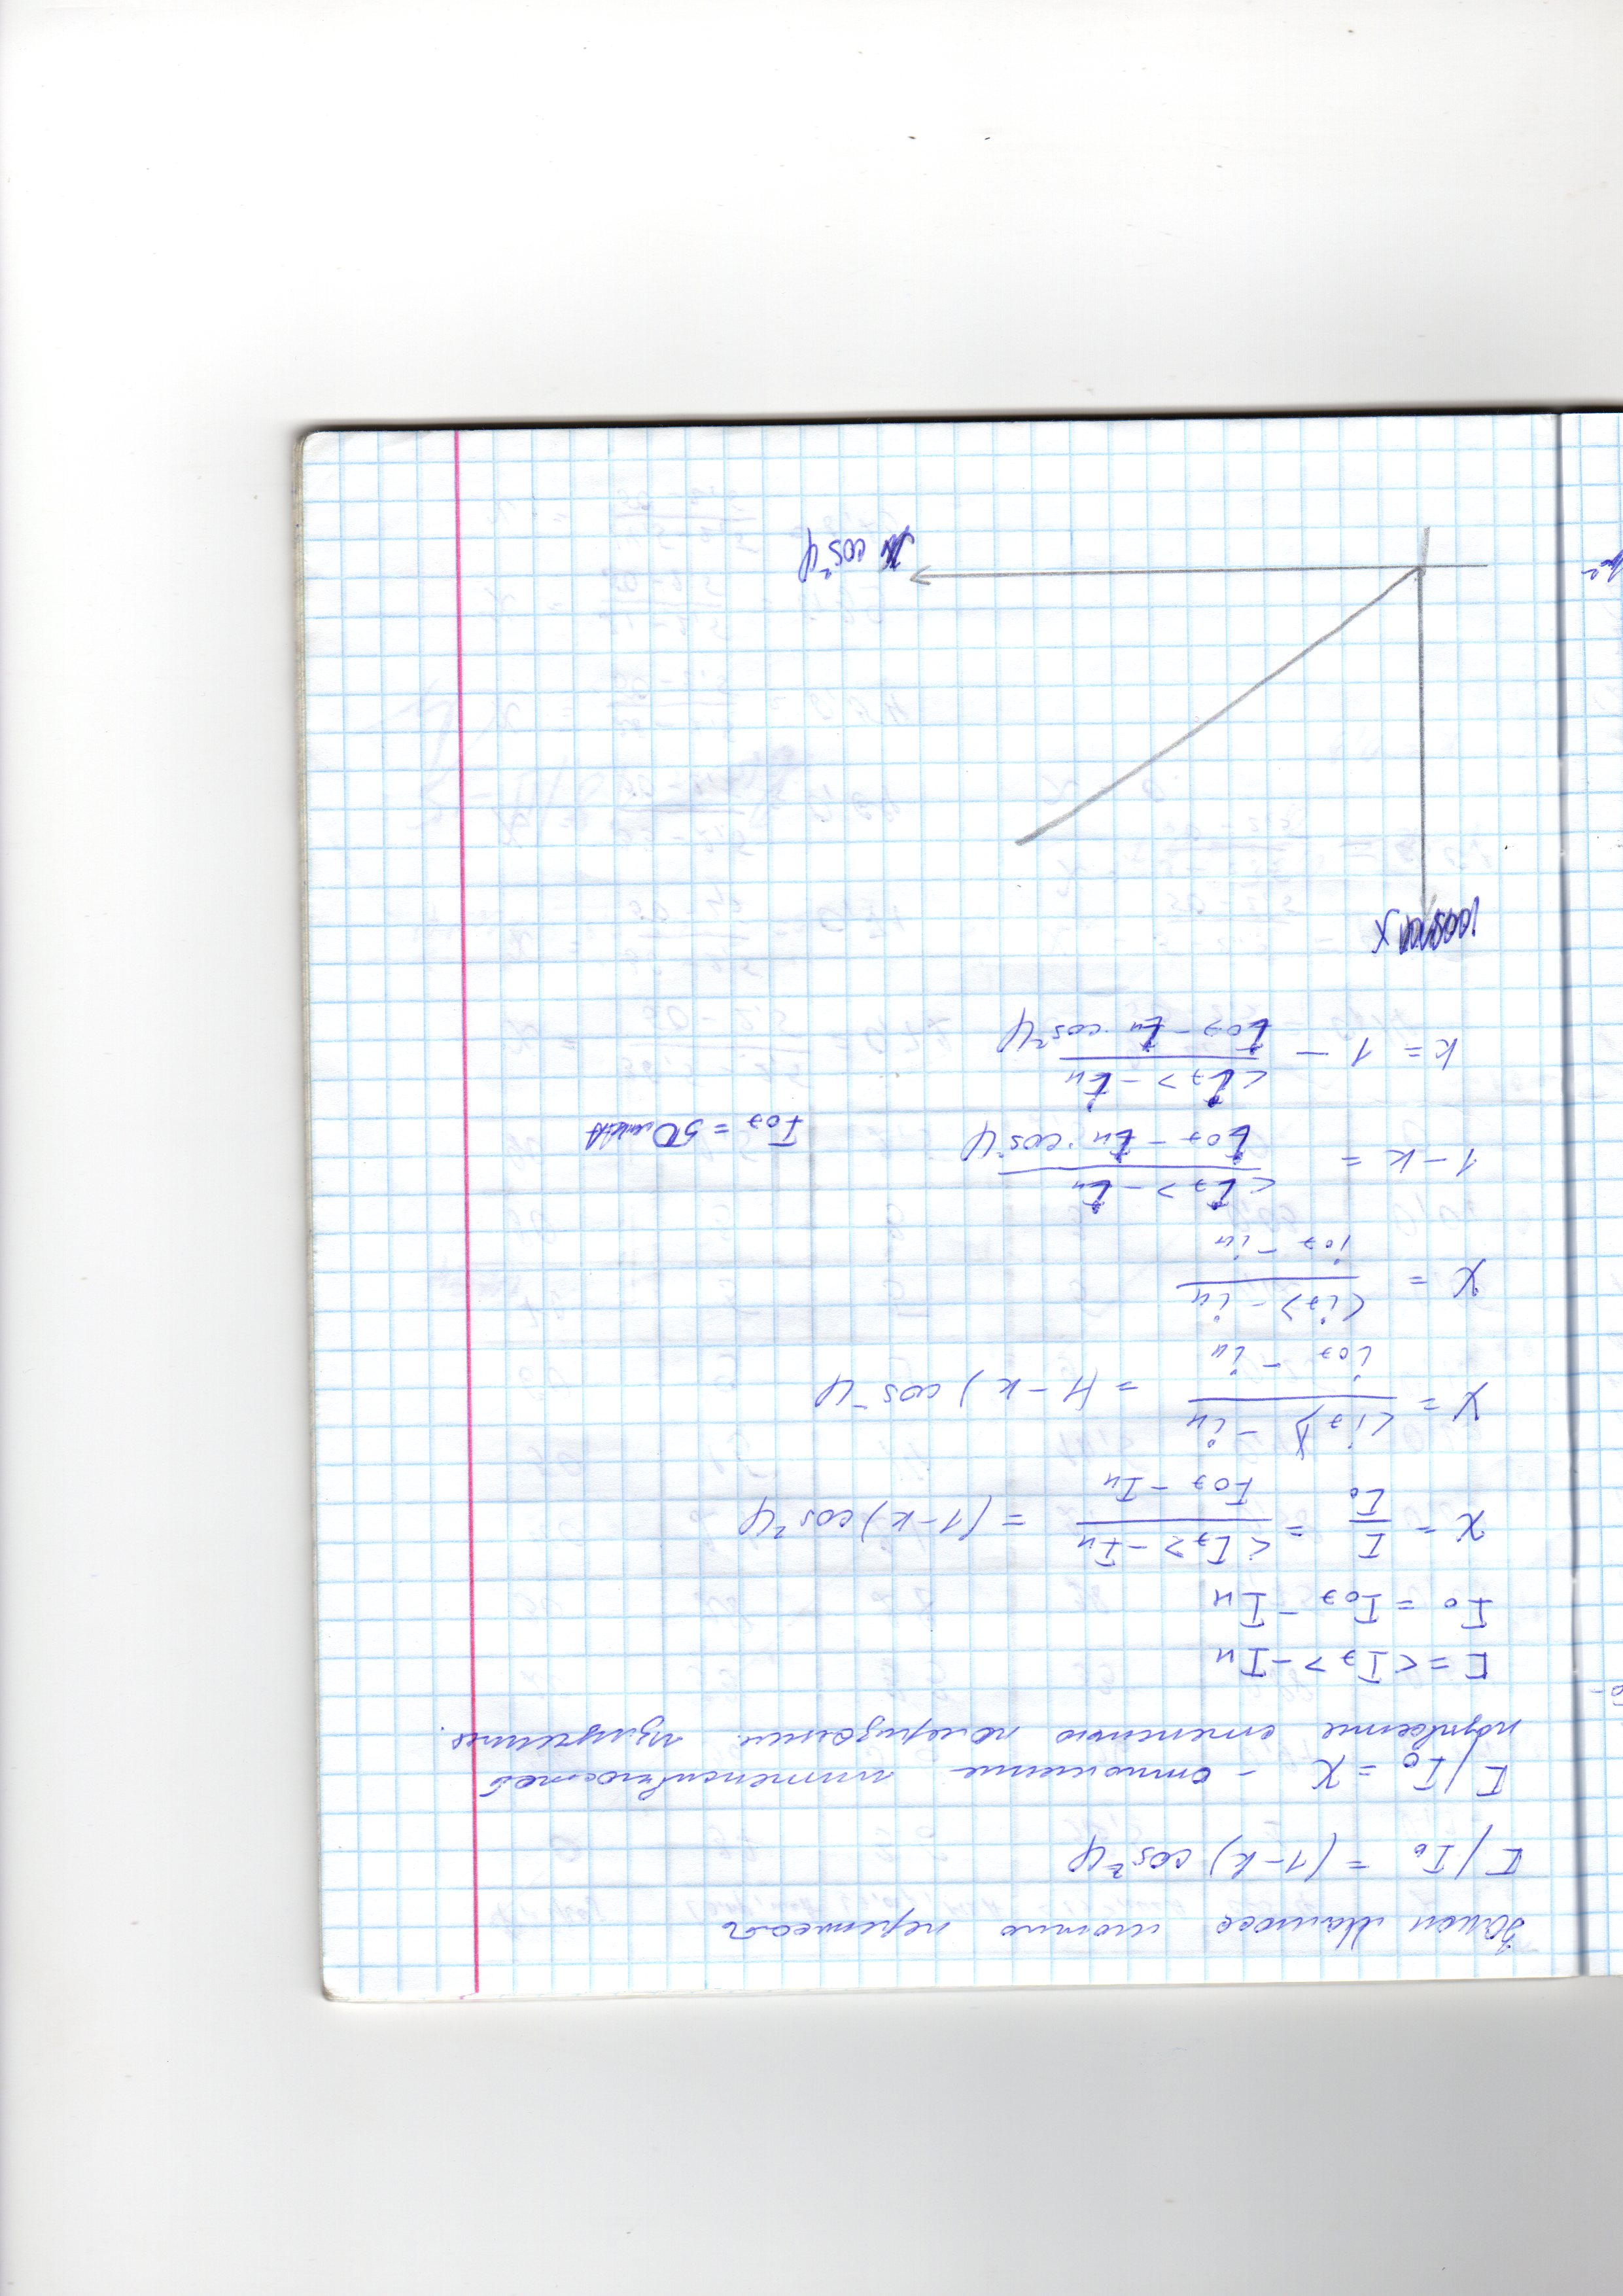 Закон Малюса можно переписать
I/I₀ = (1-k) cos²φ
I/I₀ = X - отношение интенсивностей
называется степенью поляризации излучения.
I = <Iэ> - Iн
I₀ = I₀э - Iн
X = I/I₀ = (<Iэ> - Iн)/(I₀э - Iн) = (1-k) cos²φ
X = (<iэ> - iн)/(i₀э - iн) = (1-k) cos²φ
X = (<iэ> - iн)/(i₀э - iн)
1-k = (<Iэ> - Iн)/(I₀э - Iн · cos²φ)
I₀э = 50 мкА
k = 1 - (<Iэ> - Iн)/(I₀э - Iн · cos²φ)
X
cos²φ